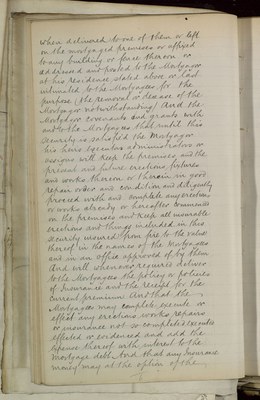 when delivered to one of them or left
on the mortgaged premises or affixed
to any building or fence thereon or
addressed and posted to the Mortgagor
at his residence stated above or last
intimated to the Mortgagees for the
purpose (the removal or decease of the
Mortgagor notwithstanding) And the
Mortgagor covenants and grants with
and to the Mortgagees that until this
security is satisfied the Mortgagor
his heirs executors administrators or
assigns will keep the premises and the
present and future erections fixtures
and works thereon or therein in good
repair order and condition and diligently
proceed with and complete any erections
or works already or hereafter commenced
on the premises and keep all insurable
erections and things included in this
security insured from fire to the value
thereof in the names of the Mortgagees
and in an office approved of by them
And will whenever required deliver
to the Mortgagees the policy or policies
of Insurance and the receipt for the
current premium And that the
Mortgagees may complete execute or
effect any erections works repairs
or insurance not so completed executed
effected or evidenced and add the
expense thereof with interest to the
Mortgage debt And that any Insurance
money may at the option of the